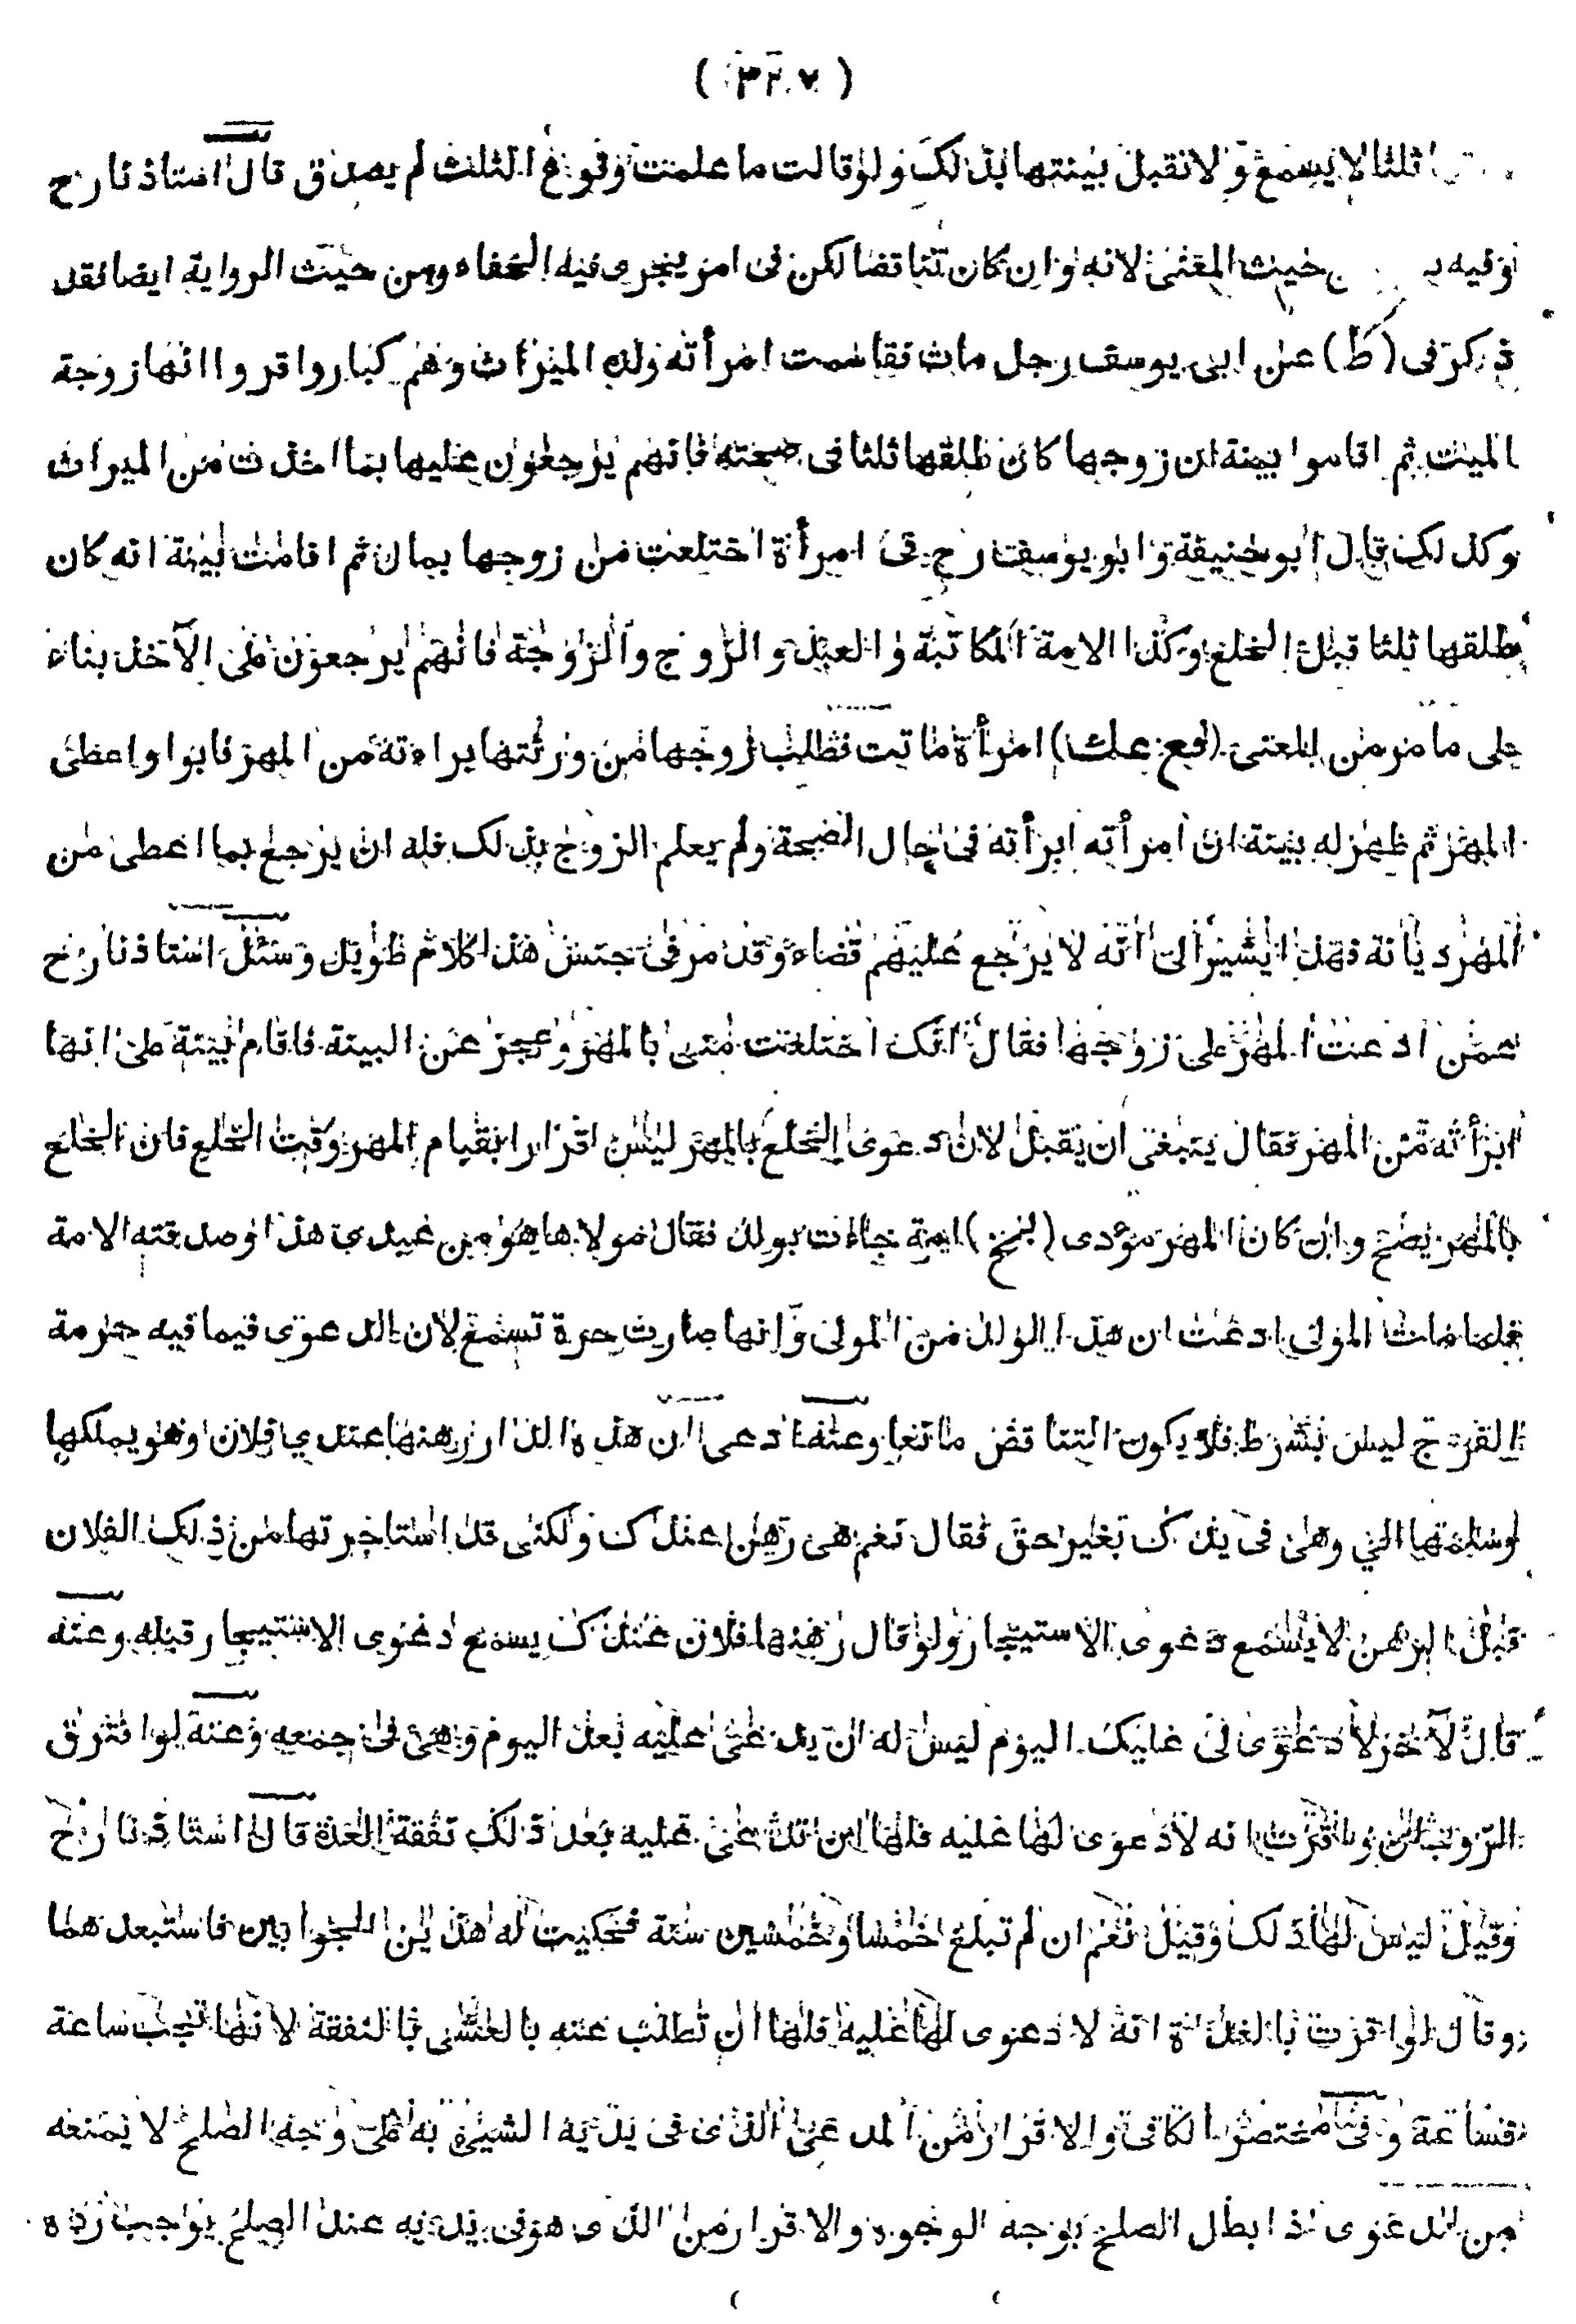 ( ٣٢٧ )
ثلثا لا يسمع ولا تقبل بينتها بذلك ولو قالت ما علمت وقوع الثلث لم يصدق قال استاذنا رح
وفيه حيث المعنى لانه وان كان تناقضا لكن فى امر يجرى فيه الخفاء ومن حيث الرواية ايضا فقد
ذكر فى (ط) عن ابى يوسف رجل مات فقاسمت امرأته ولده الميراث وهم كبار واقروا انها زوجة
الميت ثم اقاموا بينة ان زوجها كان طلقها ثلثا فى صحته فانهم يرجعون عليها بما اخذت من الميراث
وكذلك قال ابو حنيفة وابو يوسف رح فى امرأة اختلعت من زوجها بمال ثم اقامت بينة انه كان
طلقها ثلثا قبل الخلع وكذا الامة المكاتبة والعبد والزوج والزوجة فانهم يرجعون على الآخذ بناء
على ما مر من المعنى (فع عك) امرأة ماتت فطلب زوجها من ورثتها براءته من المهر فابوا واعطى
المهر ثم ظهر له بينة ان امرأته ابرأته فى حال الصحة ولم يعلم الزوج بذلك فله ان يرجع بما اعطى من
المهر ديانة فهذا يشير الى انه لا يرجع عليهم قضاء وقد مر فى جنس هذا كلام طويل وسئل استاذنا رح
عمن ادعت المهر على زوجها فقال انك اختلعت منى بالمهر وعجز عن البينة فاقام بينة على انها
ابرأته من المهر فقال ينبغى ان يقبل لان دعوى الخلع بالمهر ليس اقرارا بقيام المهر وقت الخلع فان الخلع
بالمهر يصح وان كان المهر مؤدى (بخ) امة جاءت بولد فقال مولاها هو من عبيدي هذا وصدقته الامة
فلما مات المولى ادعت ان هذا الولد من المولى وانها صارت حرة تسمع لان الدعوى فيما فيه حرمة
الفرج ليس بشرط فلا يكون التناقض مانعا وعنه ادعى ان هذه الدار رهنها عندي فلان وهو يملكها
وسلمتها الي وهى فى يدك بغير حق فقال نعم هى رهن عندك ولكنى قد استاجرتها من ذلك الفلان
قبل الرهن لا يسمع دعوى الاستيجار ولو قال رهنها فلان عندك يسمع دعوى الاستيجار قبله وعنه
قال لآخر لا دعوى لى عليك اليوم ليس له ان يدعى عليه بعد اليوم وهى فى جمعه وعنه لو افترق
الزوجان واقرت انه لا دعوى لها عليه فلها ان تدعى عليه بعد ذلك نفقة العدة قال استاذنا رح
وقيل ليس لها ذلك وقيل نعم ان لم تبلغ خمسا وخمسين سنة فحكيت له هذين الجوابين فاستبعدهما
وقال لو اقرت بالعدة انه لا دعوى لها عليه فلها ان تطلب عنه بالعشى بالنفقة لانها تجب ساعة
فساعة وفى مختصر الكافى والاقرار من المدعى الذى فى يديه الشيئ به على وجه الصلح لا يمنعه
من الدعوى اذا بطل الصلح بوجه الوجوه والاقرار من الذى هو فى يديه عند الصلح يوجب رده